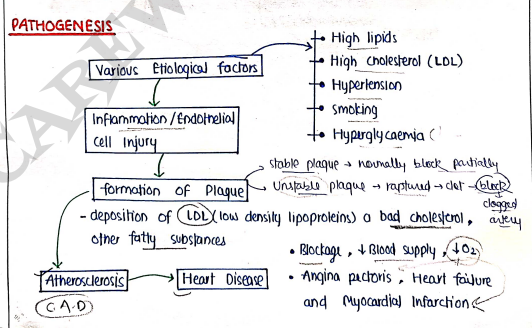 PATHOGENESIS
Various Etiological factors
High lipids
High cholesterol (LDL)
Hypertension
Smoking
Hyperglycaemia (
Inflammation/Endothelial
Cell Injury
formation of Plaque
stable plaque → normally block partially
Unstable plaque → raptured → clot → block
clogged
artery
- deposition of LDL (low density lipoproteins) a bad cholesterol,
other fatty substances
• Blockage, ↓ Blood supply, ↓O₂
Atherosclerosis → Heart Disease
(C.A.D)
• Angina pectoris, Heart failure
and Myocardial Infarction
CAREW